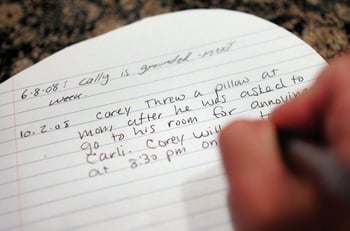 6.8.08: Cally is grounded next
week.
10.2.08 Corey threw a pillow at
mom, after he was asked to
go to his room for annoying
Carli. Corey will
at 8:30 pm on